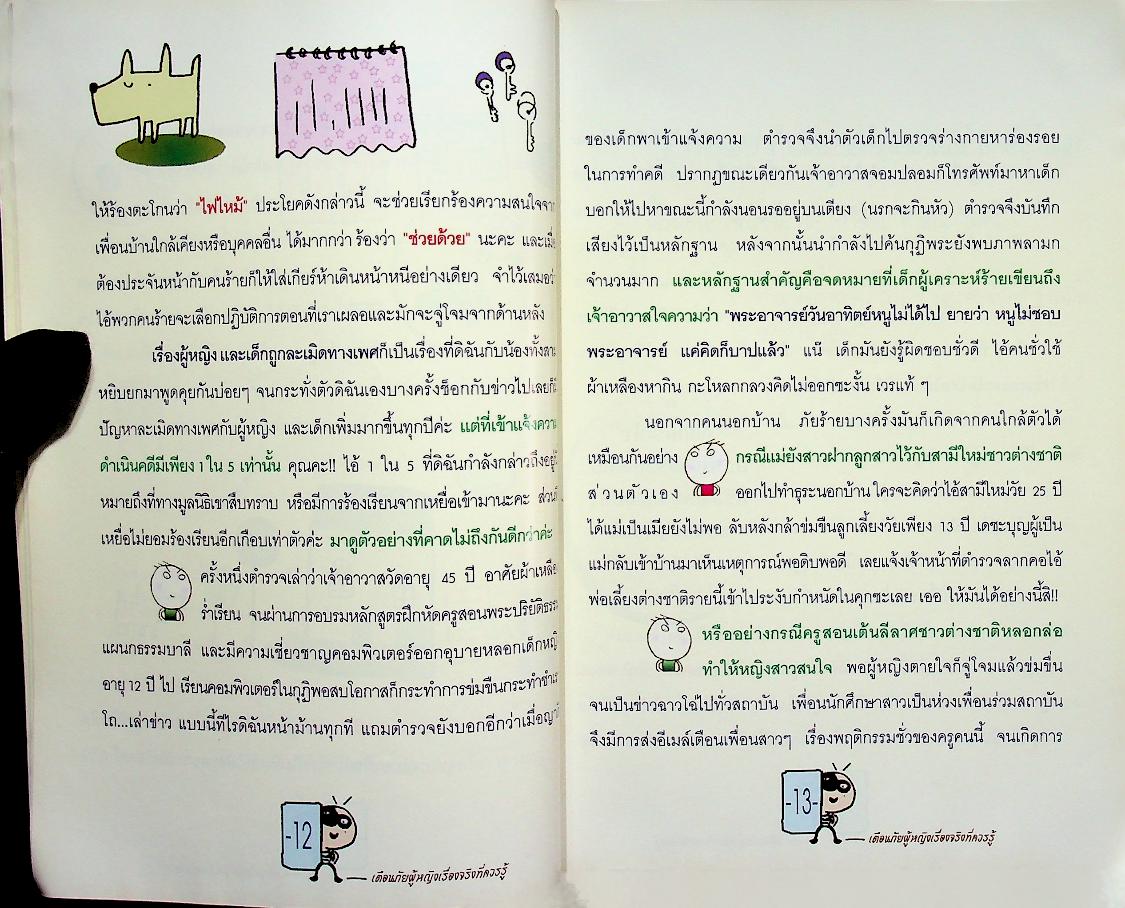 ให้ร้องตะโกนว่า "ไฟไหม้" ประโยคดังกล่าวนี้ จะช่วยเรียกร้องความสนใจจาก
เพื่อนบ้านใกล้เคียงหรือบุคคลอื่น ได้มากกว่า ร้องว่า "ช่วยด้วย" นะคะ และเมื่อ
ต้องประจันหน้ากับคนร้ายก็ให้ใส่เกียร์ห้าเดินหน้าหนีอย่างเดียว จำไว้เสมอว่า
ไอ้พวกคนร้ายจะเลือกปฏิบัติการตอนที่เราเผลอและมักจะจู่โจมจากด้านหลัง
เรื่องผู้หญิง และเด็กถูกละเมิดทางเพศก็เป็นเรื่องที่ดิฉันกับน้องทั้งสาม
หยิบยกมาพูดคุยกันบ่อยๆ จนกระทั่งตัวดิฉันเองบางครั้งช็อกกับข่าวไปเลยก็มี
ปัญหาละเมิดทางเพศกับผู้หญิง และเด็กเพิ่มมากขึ้นทุกปีค่ะ แต่ที่เข้าแจ้งความ
ดำเนินคดีมีเพียง 1 ใน 5 เท่านั้น คุณคะ!! ไอ้ 1 ใน 5 ที่ดิฉันกำลังกล่าวถึงอยู่
หมายถึงที่ทางมูลนิธิเขาสืบทราบ หรือมีการร้องเรียนจากเหยื่อเข้ามานะคะ ส่วน
เหยื่อไม่ยอมร้องเรียนอีกเกือบเท่าตัวค่ะ มาดูตัวอย่างที่คาดไม่ถึงกันดีกว่าค่ะ
ครั้งหนึ่งตำรวจเล่าว่าเจ้าอาวาสวัดอายุ 45 ปี อาศัยผ้าเหลือง
ร่ำเรียน จนผ่านการอบรมหลักสูตรฝึกหัดครูสอนพระปริยัติธรรม
แผนกธรรมบาลี และมีความเชี่ยวชาญคอมพิวเตอร์ออกอุบายหลอกเด็กหญิง
อายุ 12 ปี ไป เรียนคอมพิวเตอร์ในกุฏิพอสบโอกาสก็กระทำการข่มขืนกระทำชำเรา
โถ...เล่าข่าว แบบนี้ทีไรดิฉันหน้าม้านทุกที แถมตำรวจยังบอกอีกว่าเมื่อญาติ
-12
เตือนภัยผู้หญิงเรื่องจริงที่ควรรู้
ของเด็กพาเข้าแจ้งความ ตำรวจจึงนำตัวเด็กไปตรวจร่างกายหาร่องรอย
ในการทำคดี ปรากฏขณะเดียวกันเจ้าอาวาสจอมปลอมก็โทรศัพท์มาหาเด็ก
บอกให้ไปหาขณะนี้กำลังนอนรออยู่บนเตียง (นรกจะกินหัว) ตำรวจจึงบันทึก
เสียงไว้เป็นหลักฐาน หลังจากนั้นนำกำลังไปค้นกุฏิพระยังพบภาพลามก
จำนวนมาก และหลักฐานสำคัญคือจดหมายที่เด็กผู้เคราะห์ร้ายเขียนถึง
เจ้าอาวาสใจความว่า "พระอาจารย์วันอาทิตย์หนูไม่ได้ไป ยายว่า หนูไม่ชอบ
พระอาจารย์ แค่คิดก็บาปแล้ว" แน๊ เด็กมันยังรู้ผิดชอบชั่วดี ไอ้คนชั่วใช้
ผ้าเหลืองหากิน กะโหลกกลวงคิดไม่ออกซะงั้น เวรแท้ ๆ
นอกจากคนนอกบ้าน ภัยร้ายบางครั้งมันก็เกิดจากคนใกล้ตัวได้
เหมือนกันอย่าง กรณีแม่ยังสาวฝากลูกสาวไว้กับสามีใหม่ชาวต่างชาติ
ส่วนตัวเอง ออกไปทำธุระนอกบ้าน ใครจะคิดว่าไอ้สามีใหม่วัย 25 ปี
ได้แม่เป็นเมียยังไม่พอ ลับหลังกล้าข่มขืนลูกเลี้ยงวัยเพียง 13 ปี เดชะบุญผู้เป็น
แม่กลับเข้าบ้านมาเห็นเหตุการณ์พอดิบพอดี เลยแจ้งเจ้าหน้าที่ตำรวจลากคอไอ้
พ่อเลี้ยงต่างชาติรายนี้เข้าไประงับกำหนัดในคุกซะเลย เออ ให้มันได้อย่างนี้สิ!!
หรืออย่างกรณีครูสอนเต้นลีลาศชาวต่างชาติหลอกล่อ
ทำให้หญิงสาวสนใจ พอผู้หญิงตายใจก็จู่โจมแล้วข่มขืน
จนเป็นข่าวฉาวโฉ่ไปทั่วสถาบัน เพื่อนนักศึกษาสาวเป็นห่วงเพื่อนร่วมสถาบัน
จึงมีการส่งอีเมล์เตือนเพื่อนสาวๆ เรื่องพฤติกรรมชั่วของครูคนนี้ จนเกิดการ
-13-
เตือนภัยผู้หญิงเรื่องจริงที่ควรรู้